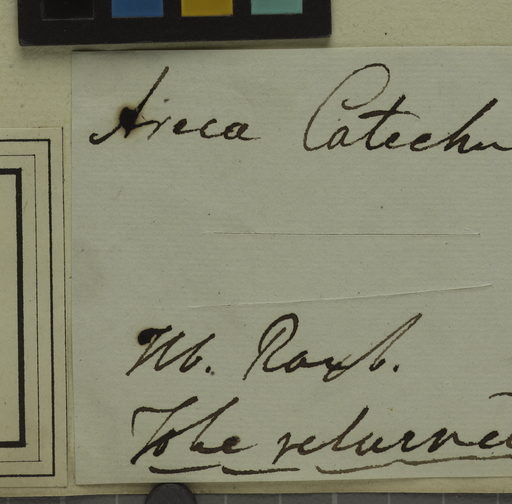 Areca Catechu
Hb. Roxb.
To be returned